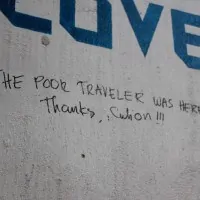 LOVE
THE POOR TRAVELER WAS HERE
Thanks, Subon!!!